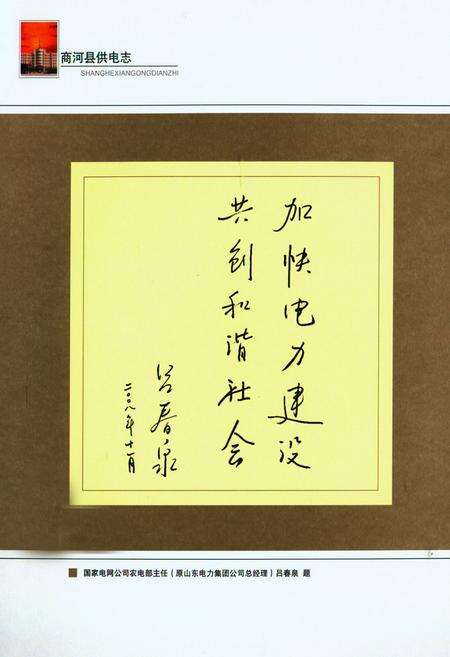 商河县供电志
SHANGHEXIANGONGDIANZHI
加快电力建设
共创和谐社会
吕春泉
二〇〇八年十一月
国家电网公司农电部主任(原山东电力集团公司总经理)吕春泉 题